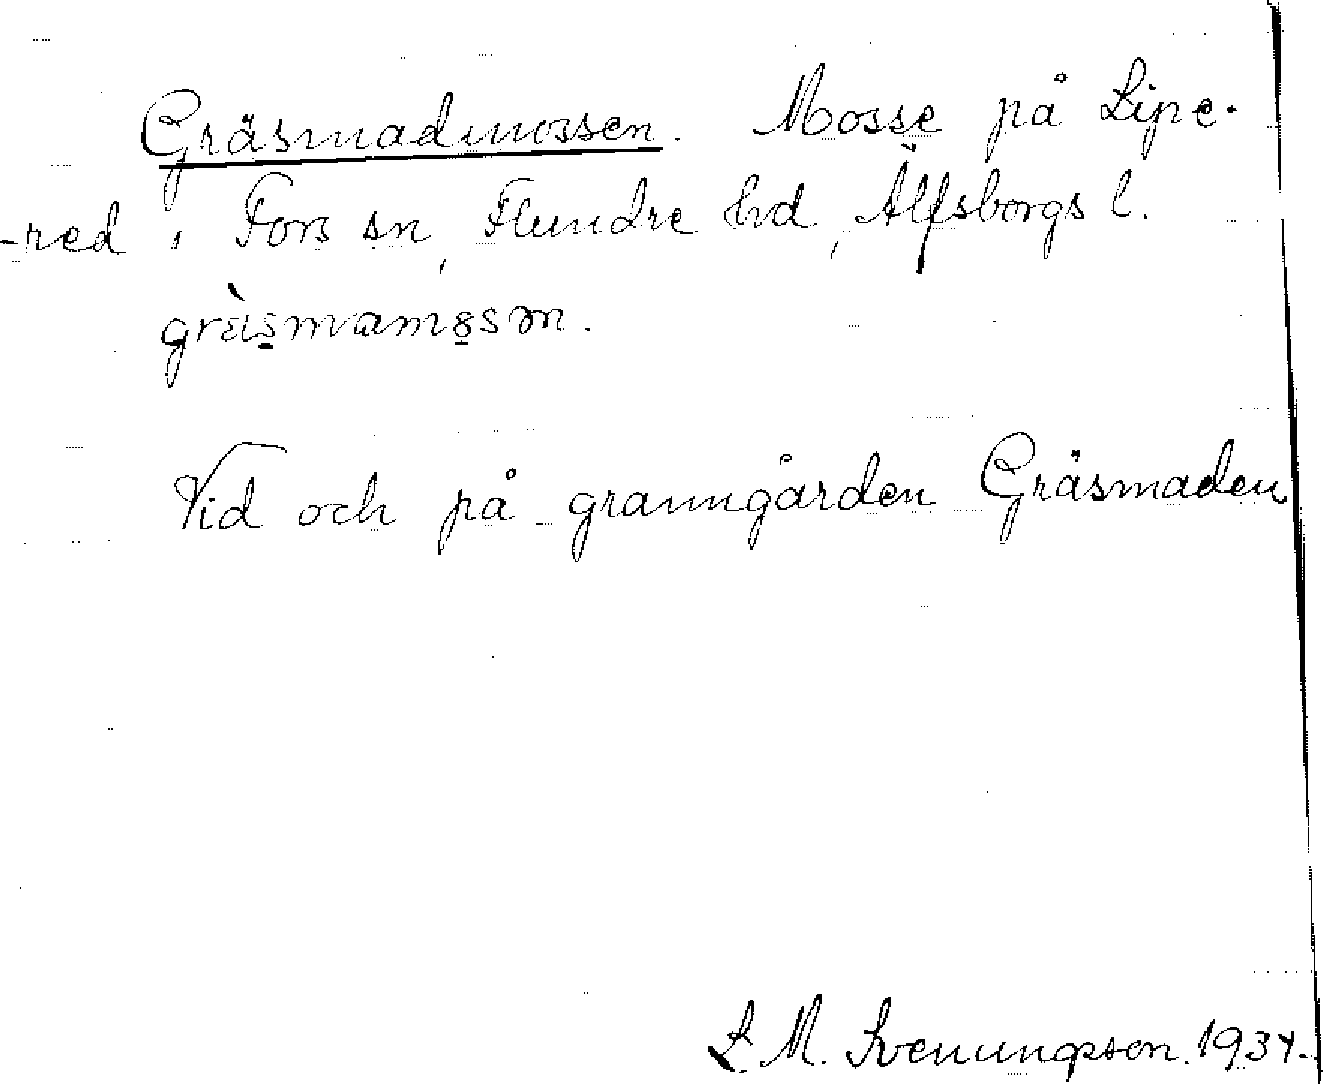 Gräsmadmossen. Mosse på Lipe-
-red i Fors sn, Flundre hd, Älfsborgs l.
gräsmamossen.
Vid och på granngården Gräsmaden
L. M. Svenungsson. 1934.